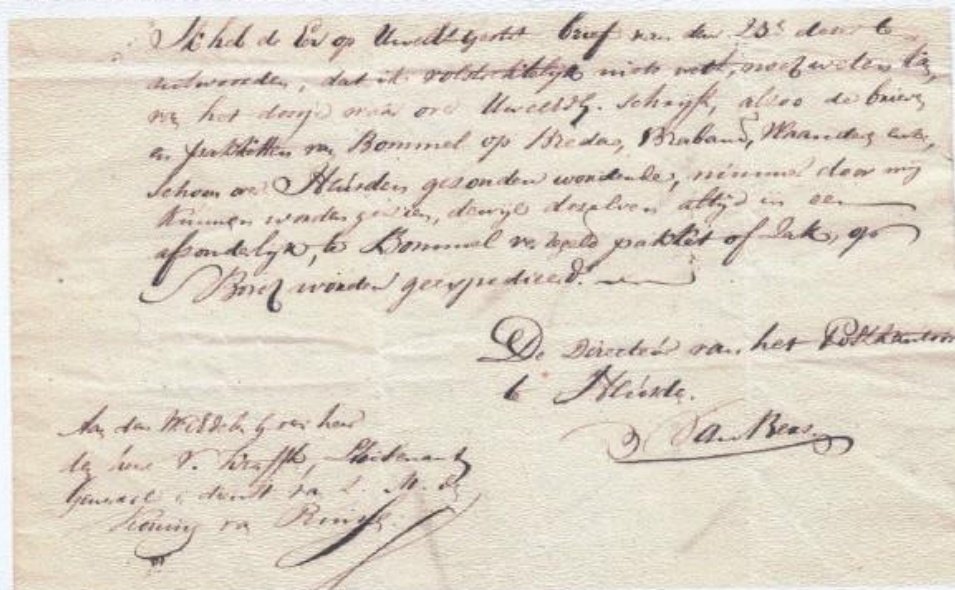 Ik heb de Eer op UwelEd brief van den 23e deser te
antwoorden, dat ik volstrektelijk niets weet, noch weten kan,
van het doosje waar over UwelEdg. schrijft, alsoo de brieven
en pakketten van Bommel op Breda, Braband, Vlaanderen enz,
schoon over Heusden gesonden wordende, nimmer door mij
kunnen worden gezien, dewijl deselven altijd in een
afsonderlijk, te Bommel verzegeld pakket of Zak, op
Bosch worden geexpedieerd.
De Directeur van het Postkantoor
te Heusden.
Van Bens
Aan den heer
den heer v. Lieutenant
Generaal in dienst van Z. M. den
Koning van Pruissen